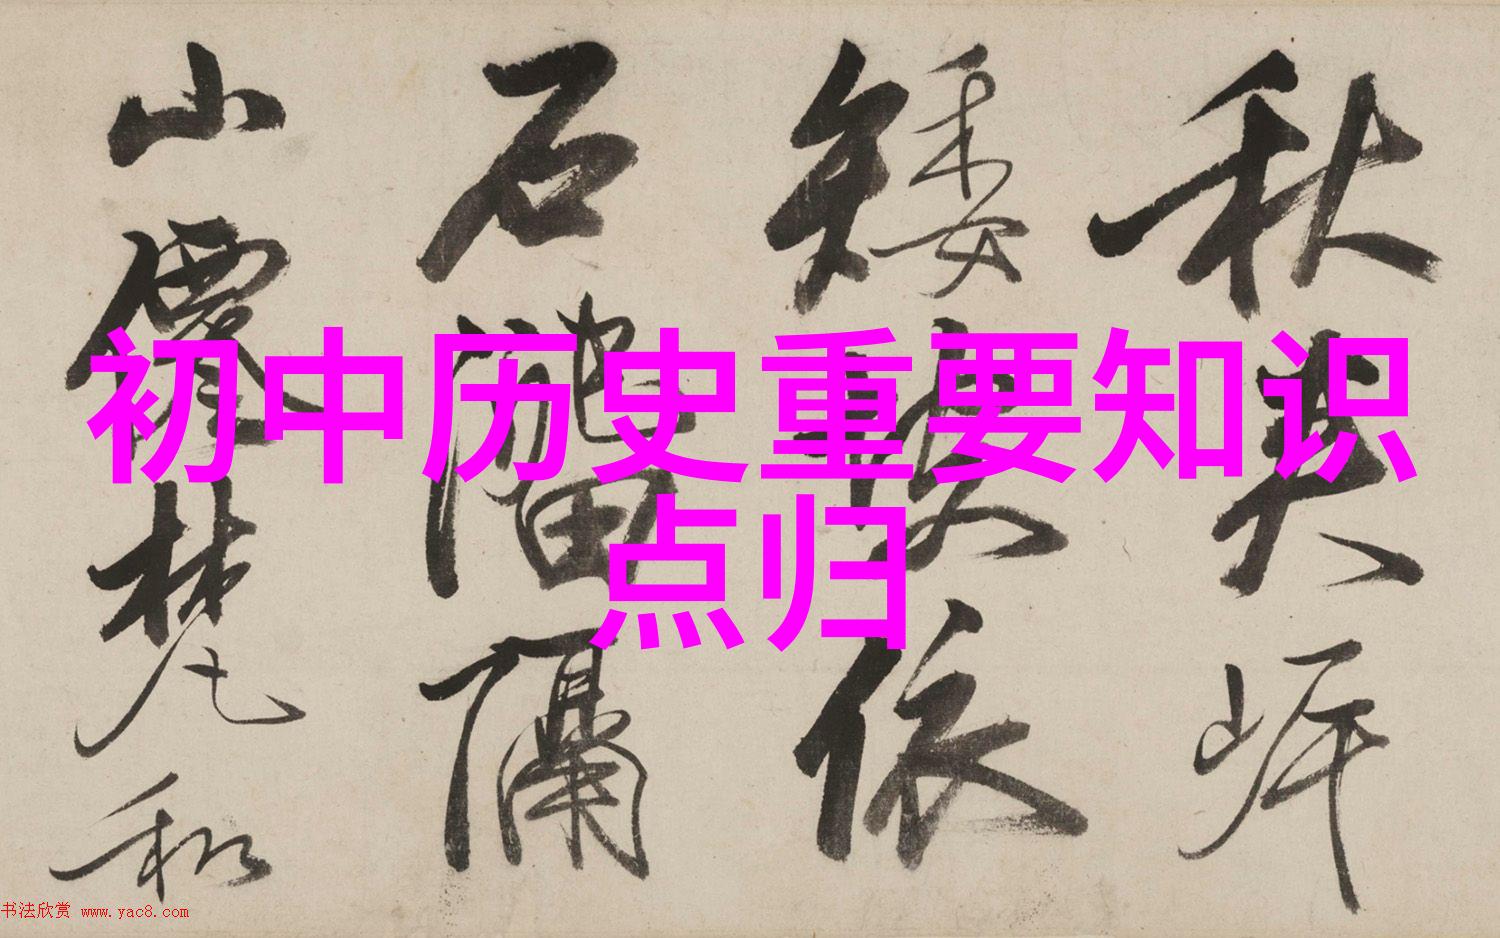 初中历史重要知识
点归
秋
矮依
石隔
山梵和
书法欣赏 www.yac8.com